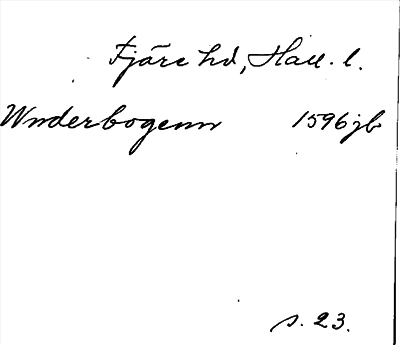 Fjäre hd, Hall. l.
Wnderbogenn 1596 jb
s. 23.